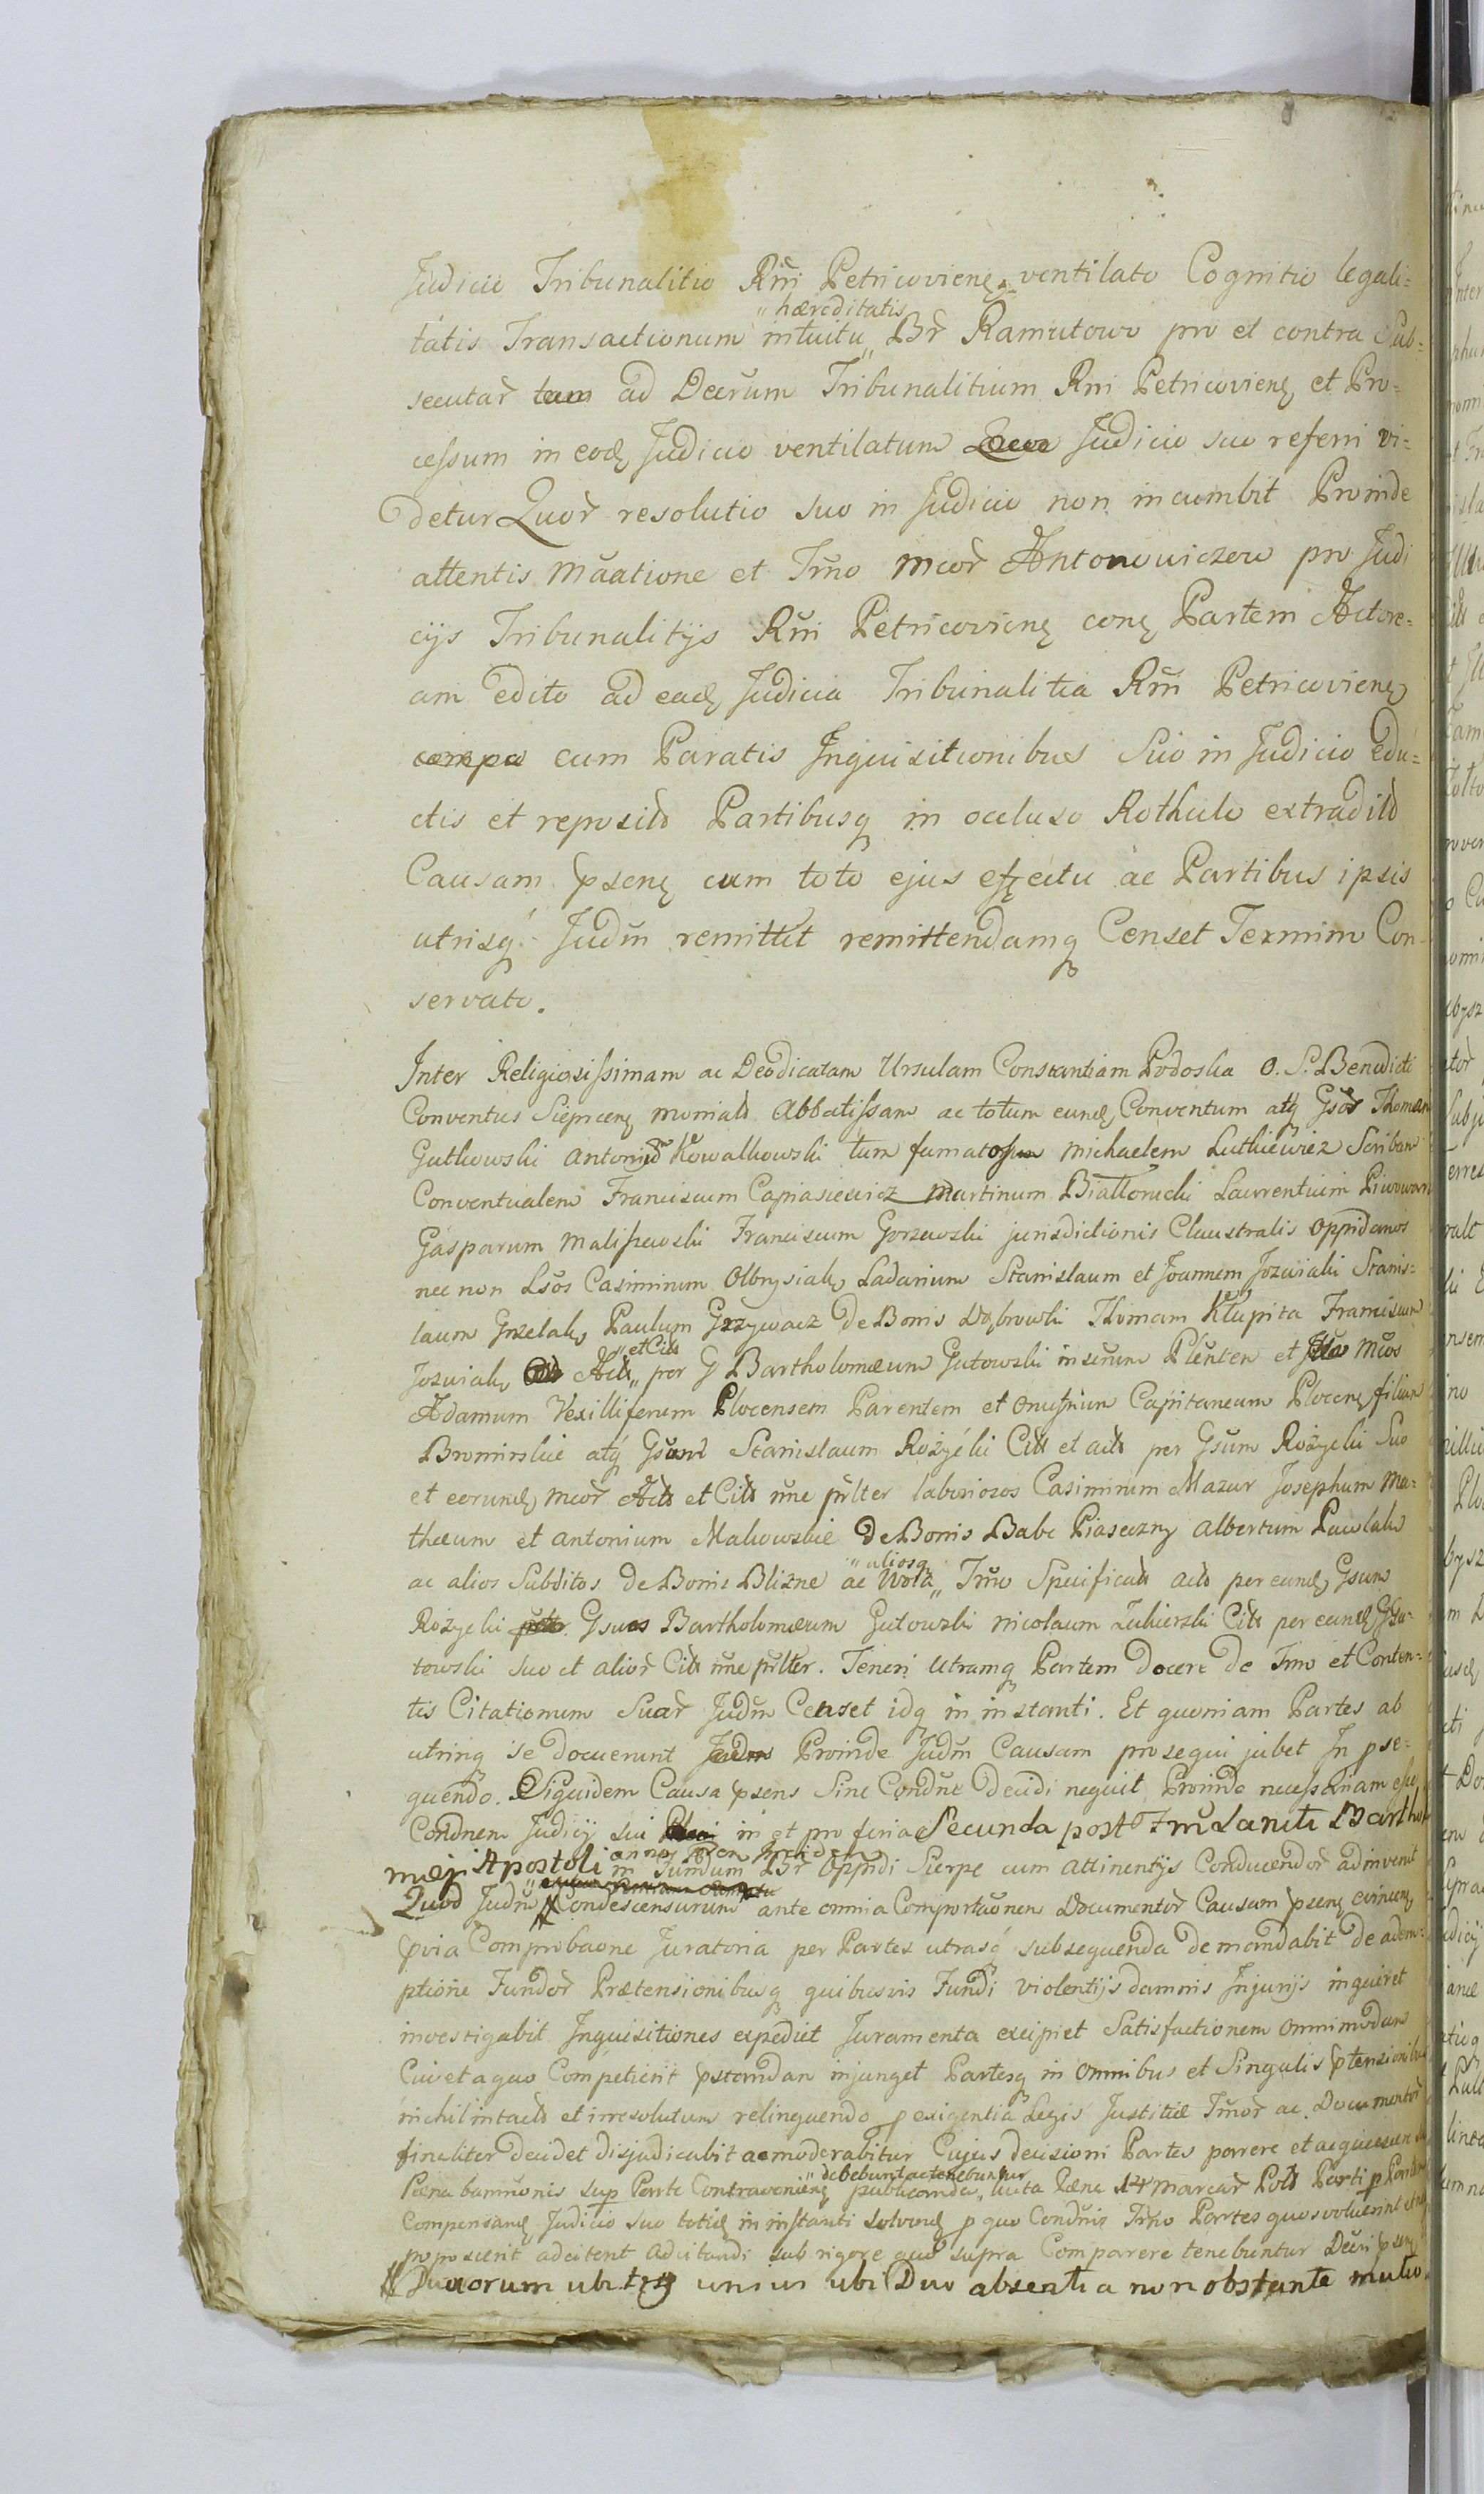 Judicio Tribunalitio Rni Petricovienę ventilato Cognitio legali=
tatis Transactionum intuitu „hæreditatis„ Br̃ Ramutowo pro et contra Sub=
secutar̃ ad Decrum Tribunalitium Rni Petricovienę et Pro=
cessum in eodę Judicio ventilatum Judicio suo referri vi=
detur Quor̃ resolutio suo in Judicio non incumbit Proinde
attentis Mãatione et Tr̃no Mcor̃ Antonowiczow pro Judi
cijs Tribunalitijs Rñi Petricovienę conę Partem Actore=
am edito ad eadę Judicia Tribunalitia Rñi Petricovienę
cum Paratis Inquisitionibus Suo in Judicio edu=
ctis et repositis Partibusq in occluso Rothulo extraditis
Causam psenę cum toto ejus effectu ac Partibus ipsis
utrisq Judm̃ remittit remittendamq Censet Termino Con=
servato.
Inter Religiosissimam ac Deodicatam Ursulam Constantiam Podoska O. S. Benedicti
Conventus Siepricenę monialium Abbatissam ac totum eundę Conventum atq Gsos Thomam
Gutkowski Antonium Kowalkowski tum famatosum Michaelem Lutkiewicz Scribam
Conventualem Franciscum Capiasiewicz Martinum Białłorucki Laurentium Piwowar
Gasparum Maliszewski Franciscum Gorzewski jurisdictionis Claustralis Oppidanos
nec non Lsos Casimirum Olbrysiak Ladarium Stanislaum et Joannem Jozwiaki Stanis=
laum Grzelak Paulum Grzywacz de Bonis Dąbrowki Thomam Kłupita Franciscum
Jozwiak Acts „et Cits„ per G Bartholomæum Gutowski insrum Pltenten et Mcos
Adamum Vexilliferum Plocensem Parentem et Onufrium Capitaneum Plocenę filium
Bromirskie atq Gsum Stanislaum Rożycki Cits et acts per Gsum Rożycki Suo
et eorundę mcor̃ Acts et Cits nne pr̃lter laboriosos Casimirum Mazur Josephum Ma=
thæum et Antonium Makowskie de Bonis Babe Piaseczny Albertum Pawlak
ac alios Subditos de Bonis Blizne ac Wola „aliosq„ Tr̃no Specificats acts per eundę Gsum
Rożycki Gsuos Bartholomæum Gutowski Nicolaum Zukierski Cits per eundę G Gu=
towski suo et alior̃ Cits nne pr̃lter. Teneri Utramq Partem docere de Trno et Conten=
tis Citationum Suar̃ Judm̃ Censet idq in instanti. Et quoniam Partes ab
utrinq se docuerunt Proinde Judm̃ Causam prosequi jubet In pse=
quendo. Siquidem Causa psens Sine Condne decidi nequit Proinde necessariam esse
Condnem Judicij sui in et pro feria Secunda post Fm Sancti Bartho
mæj Apostoli in fundum Br̃ Oppidi Sierpc cum attinentijs Conducendor̃ adinvenit
Quod Judm̃ Condescensurum ante omnia Comportãonem Documentor̃ Causam psenę
pvia Comprobãone Juratoria per Partes utrasq subsequenda demandabit de adem=
ptione Fundor̃ Prætensionibusq quibusvis Fundi violentijs damnis Injurijs inquiret
investigabit Inquisitiones expediet Juramenta excipiet Satisfactionem Omnimodam
Cui et a quo Competierit pstandam injunget Partesq in Omnibus et Singulis ptensionibus
nichil intacts et irresolutum relinquendo p exigentia Legis Justitiæ Tr̃nor ac Documentor̃
finaliter decidet disjudicabit ac moderabitur Cujus decisioni Partes parere et acquiescere
Pœna bannionis sup Parte Contravenienę publicanda „debebunt ac tenebuntur„ Pæna 14 marcar̃ Pols Parti p Parte
Compensandę Judicio suo totię in instanti solvendę p quo Condnis Trno Partes quos voluerint
poposcerit adcitent Adcitandi sub rigore quo supra Comparere tenebuntur
Duorum ubi tres unius ubi Duo absentia non obstante